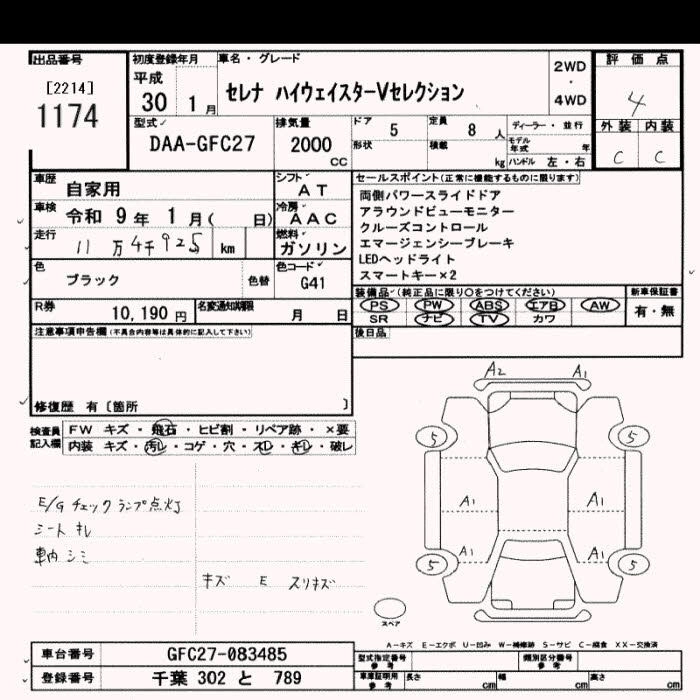 出品番号
[2214]
1174
初度登録年月
平成
30 1月
車名・グレード
セレナ ハイウェイスターVセレクション
2WD
・
4WD
評価点
4
外装 内装
C C
型式
DAA-GFC27
排気量
2000
CC
ドア 5
定員 8 人
ディーラー・並行
形状
積載 kg
モデル年式 年
ハンドル 左・右
車歴 自家用
シフト AT
車検 令和 9年 1月( 日)
冷房 AAC
走行 11万4千925 km
燃料 ガソリン
色 ブラック
色替
色コード G41
R券 10,190円
名変通知期限 月 日
セールスポイント(正常に機能するものに限ります)
両側パワースライドドア
アラウンドビューモニター
クルーズコントロール
エマージェンシーブレーキ
LEDヘッドライト
スマートキー×2
装備品(純正品に限り○をつけてください)
PS PW ABS エアB AW
SR ナビ TV カワ
新車保証書
有・無
後日品
注意事項申告欄(不具合内容等は具体的に記入して下さい)
修復歴 有〔箇所 〕
検査員記入欄
FW キズ・飛石・ヒビ割・リペア跡・×要
内装 キズ・汚レ・コゲ・穴・スレ・キレ・破レ
E/G チェックランプ点灯
シート キレ
車内 シミ
キズ E スリキズ
A2 A1
5 5
A1 A1
A1 A1
5 5
スペア
A-キズ E-エクボ U-凹み W-補修跡 S-サビ C-腐食 XX-交換済
車台番号 GFC27-083485
登録番号 千葉 302 と 789
型式指定番号 参考
類別区分番号 参考
車庫証明用 参考
長さ cm
幅 cm
高さ cm